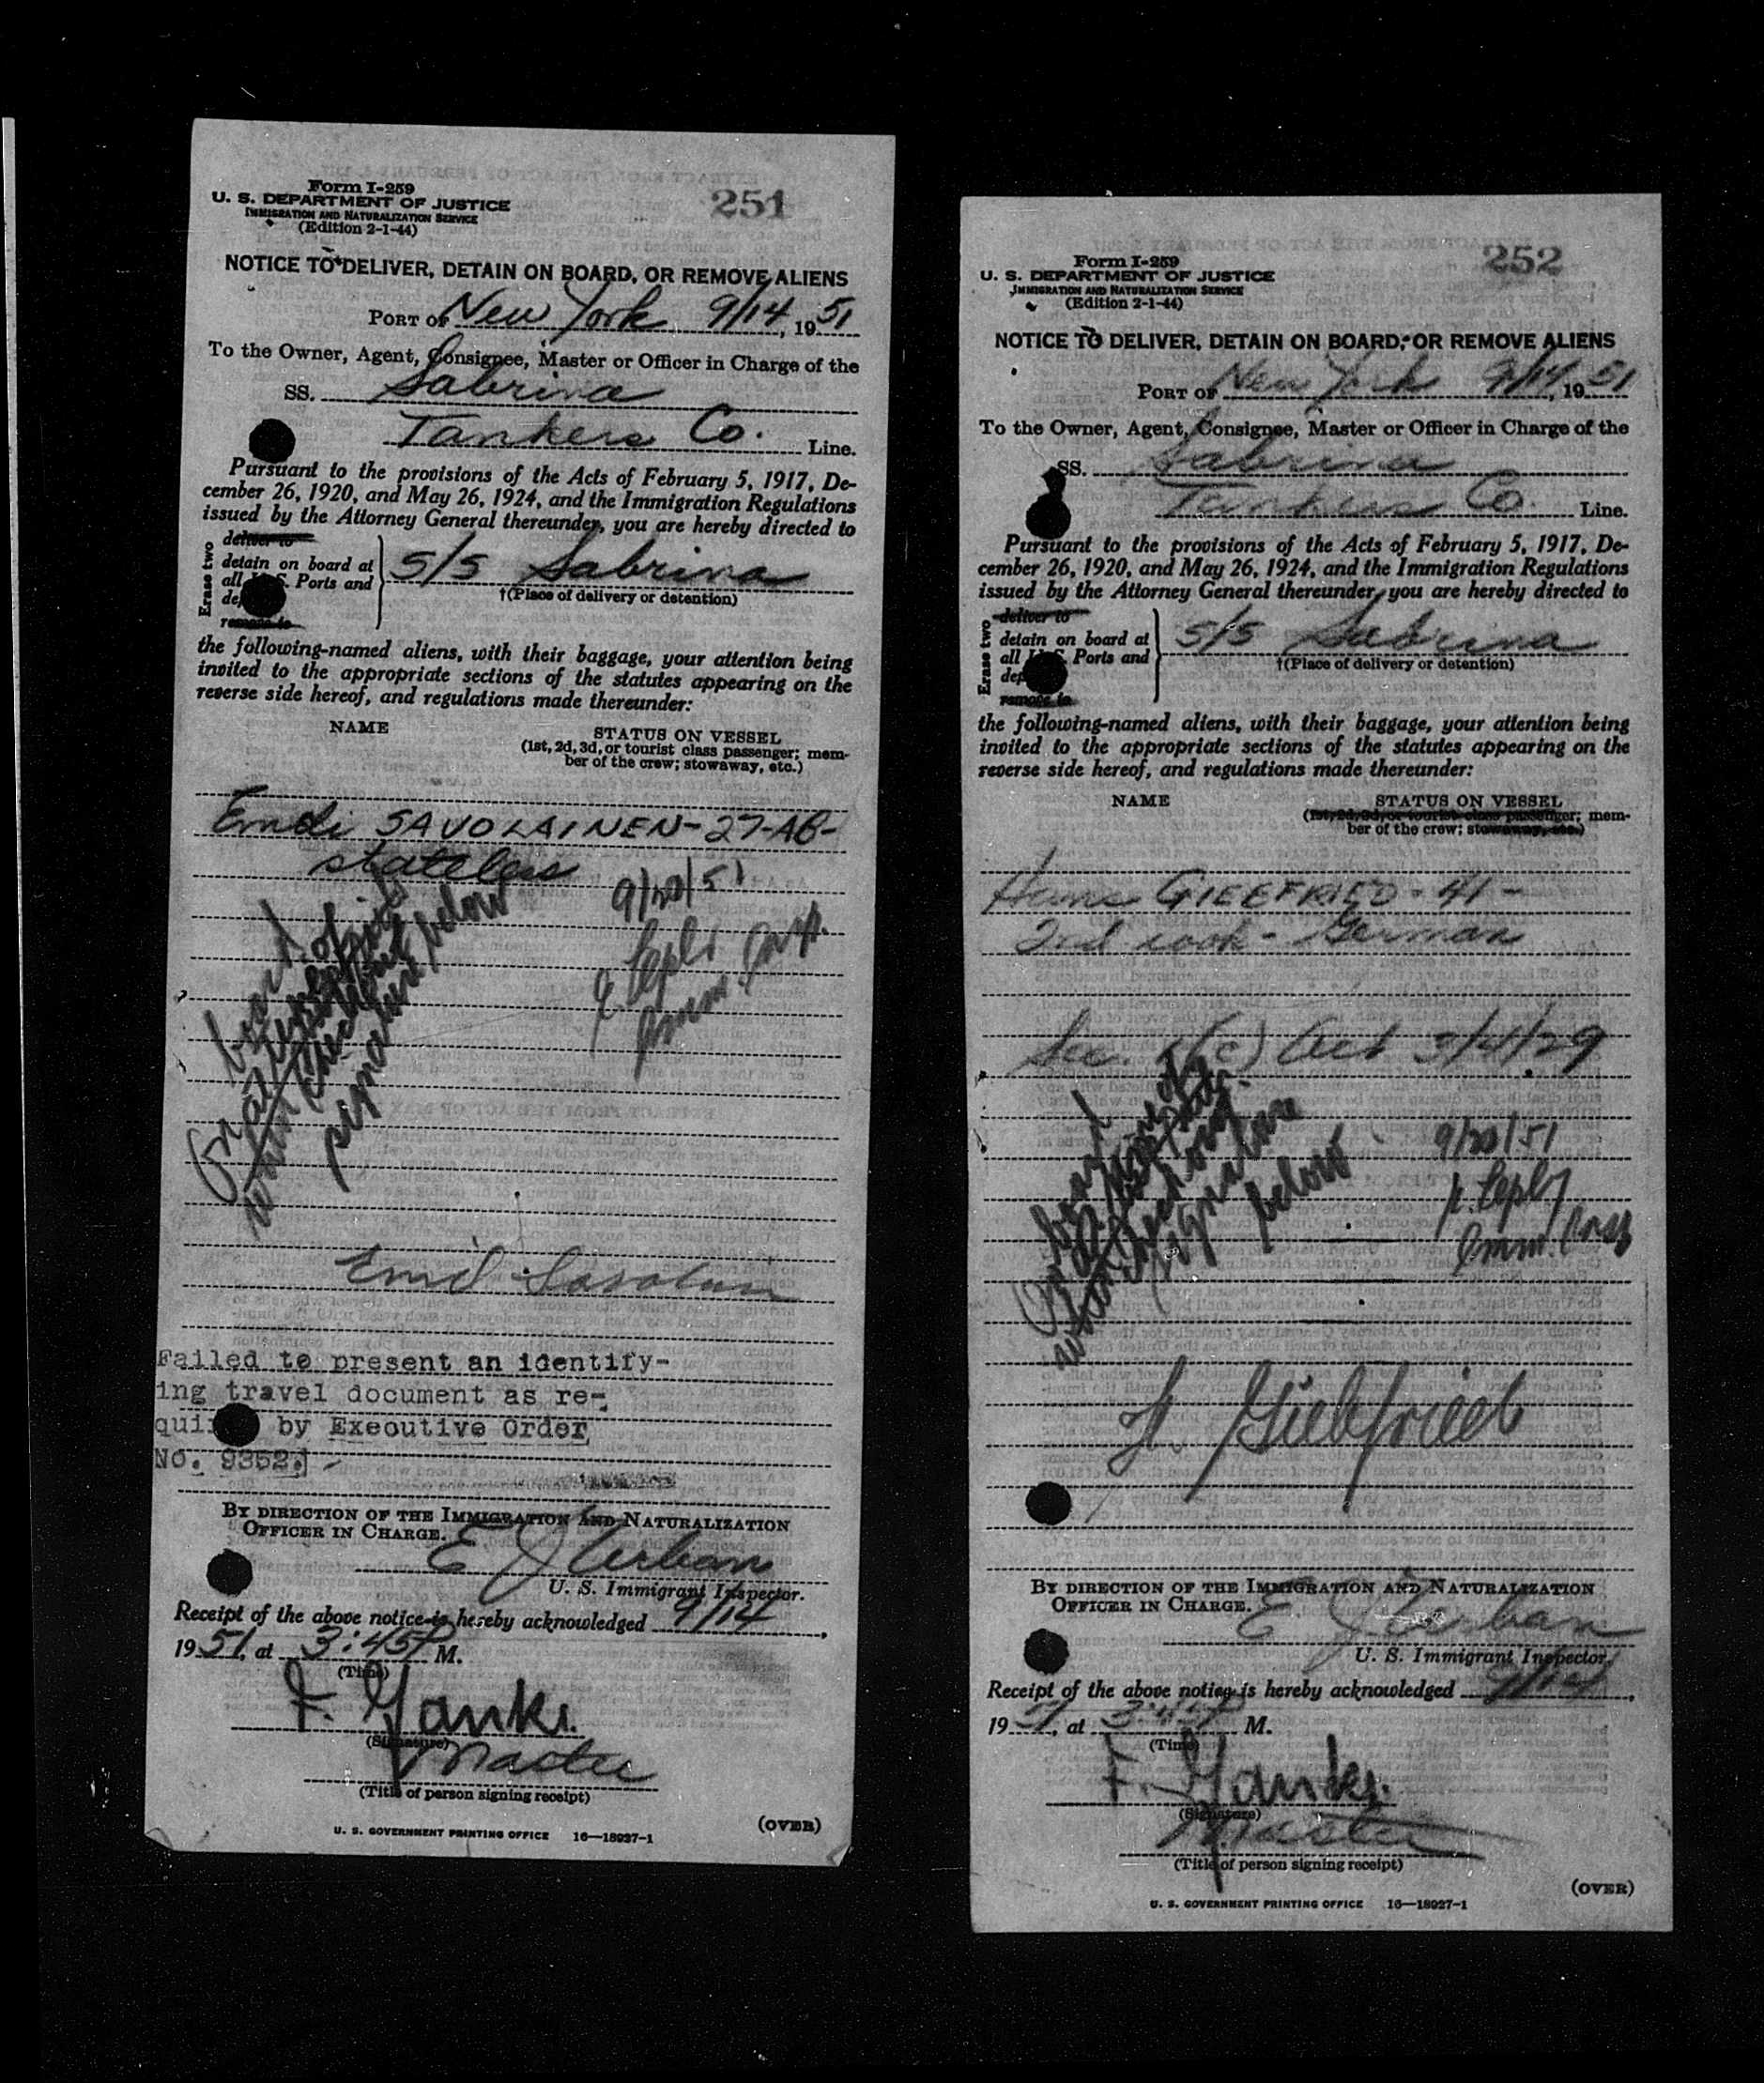 Form I-259
U. S. DEPARTMENT OF JUSTICE
IMMIGRATION AND NATURALIZATION SERVICE
(Edition 2-1-44)
251
NOTICE TO DELIVER, DETAIN ON BOARD, OR REMOVE ALIENS
PORT OF New York 9/14, 1951
To the Owner, Agent, Consignee, Master or Officer in Charge of the
SS. Sabrina
Tankers Co. Line.
Pursuant to the provisions of the Acts of February 5, 1917, De-
cember 26, 1920, and May 26, 1924, and the Immigration Regulations
issued by the Attorney General thereunder, you are hereby directed to
Erase two
deliver to
detain on board at
all U. S. Ports and
remove to
S/S Sabrina
†(Place of delivery or detention)
the following-named aliens, with their baggage, your attention being
invited to the appropriate sections of the statutes appearing on the
reverse side hereof, and regulations made thereunder:
NAME
STATUS ON VESSEL
(1st, 2d, 3d, or tourist class passenger; mem-
ber of the crew; stowaway, etc.)
SAVOLAINEN-27-AB-
stateless
9/20/51
board
signature below
Emil
Failed to present an identify-
ing travel document as re-
by Executive Order
No. 9352.
BY DIRECTION OF THE IMMIGRATION AND NATURALIZATION
OFFICER IN CHARGE.
E J Urban
U. S. Immigrant Inspector.
Receipt of the above notice is hereby acknowledged 9/14,
1951, at 3:45P M.
(Time)
F. Yanks.
(Signature)
Master
(Title of person signing receipt)
(OVER)
U. S. GOVERNMENT PRINTING OFFICE 16—18927-1
Form I-259
U. S. DEPARTMENT OF JUSTICE
IMMIGRATION AND NATURALIZATION SERVICE
(Edition 2-1-44)
252
NOTICE TO DELIVER, DETAIN ON BOARD, OR REMOVE ALIENS
PORT OF New York 9/14, 1951
To the Owner, Agent, Consignee, Master or Officer in Charge of the
SS. Sabrina
Tankers Co. Line.
Pursuant to the provisions of the Acts of February 5, 1917, De-
cember 26, 1920, and May 26, 1924, and the Immigration Regulations
issued by the Attorney General thereunder, you are hereby directed to
Erase two
deliver to
detain on board at
all U. S. Ports and
remove to
S/S Sabrina
†(Place of delivery or detention)
the following-named aliens, with their baggage, your attention being
invited to the appropriate sections of the statutes appearing on the
reverse side hereof, and regulations made thereunder:
NAME
STATUS ON VESSEL
(1st, 2d, 3d, or tourist class passenger; mem-
ber of the crew; stowaway, etc.)
Hans GIEEFRIED - 41 -
2nd cook - German
Sec. (c) Act 3/4/29
board
signature
below
9/20/51
BY DIRECTION OF THE IMMIGRATION AND NATURALIZATION
OFFICER IN CHARGE.
E. J Urban
U. S. Immigrant Inspector.
Receipt of the above notice is hereby acknowledged 9/14,
1951, at 3:45P M.
(Time)
F. Yanks.
(Signature)
Master
(Title of person signing receipt)
(OVER)
U. S. GOVERNMENT PRINTING OFFICE 16—18927-1